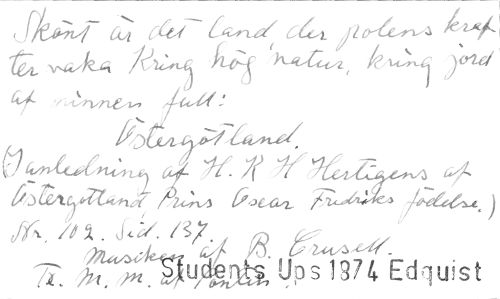 Skönt är det land, der polens kraf
ter vaka Kring hög natur, kring jord
af minnen full:
Östergötland.
(I anledning af H. K. H Hertigens af
Östergötland Prins Oscar Fredriks födelse.)
Nr. 102. Sid. 137.
Musiken af B. Crusell.
Tr. M. m. af
Students Ups 1874 Edquist